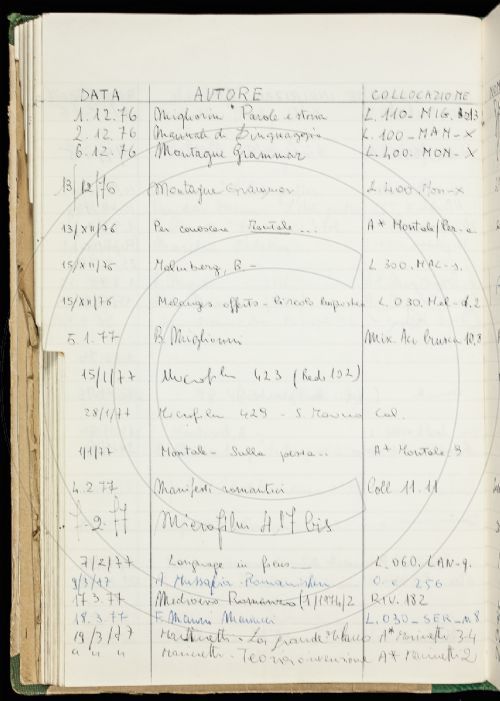 DATA AUTORE COLLOCAZIONE
1.12.76 Migliorini Parole e storia L.110-MIG.
2.12.76 Manuale di L.100-MAN-X
6.12.76 Montague Grammar L.400.MON-X
13/12/76 Montague Grammar L.400.Mon-x
13/XII/76 Per conoscere Montale... A* Montale/Per-
15/XII/76 Malmberg, B.- L 300.MAL-s.
15/XII/76 Melanges offerts- L 030.Mel-d.2
5.1.77 B. Migliorini Mix. Acc Crusca 10,8
15/1/77 Microfilm 423 (Redi 192)
28/1/77 Microfilm 429 - S Marco Cal.
1/77 Montale - Sulla poesia.. A* Montale.9
4.2.77 Manifesti romantici Coll 11.11
7-2.77 Microfilm A 17 bis
7/2/77 Language in focus L.060.LAN-q.
9/3/77 A. Mussafia-Romanischen 256
17.3.77 Medioevo Romanzo (1/1974/2 RIV.182
18.3.77 F. Mancini L.030-SER-M8
19/3/77 Marinetti - La grande Milano A* Marinetti 34
" " " Marinetti - Teoria e invenzione A* Marinetti 2